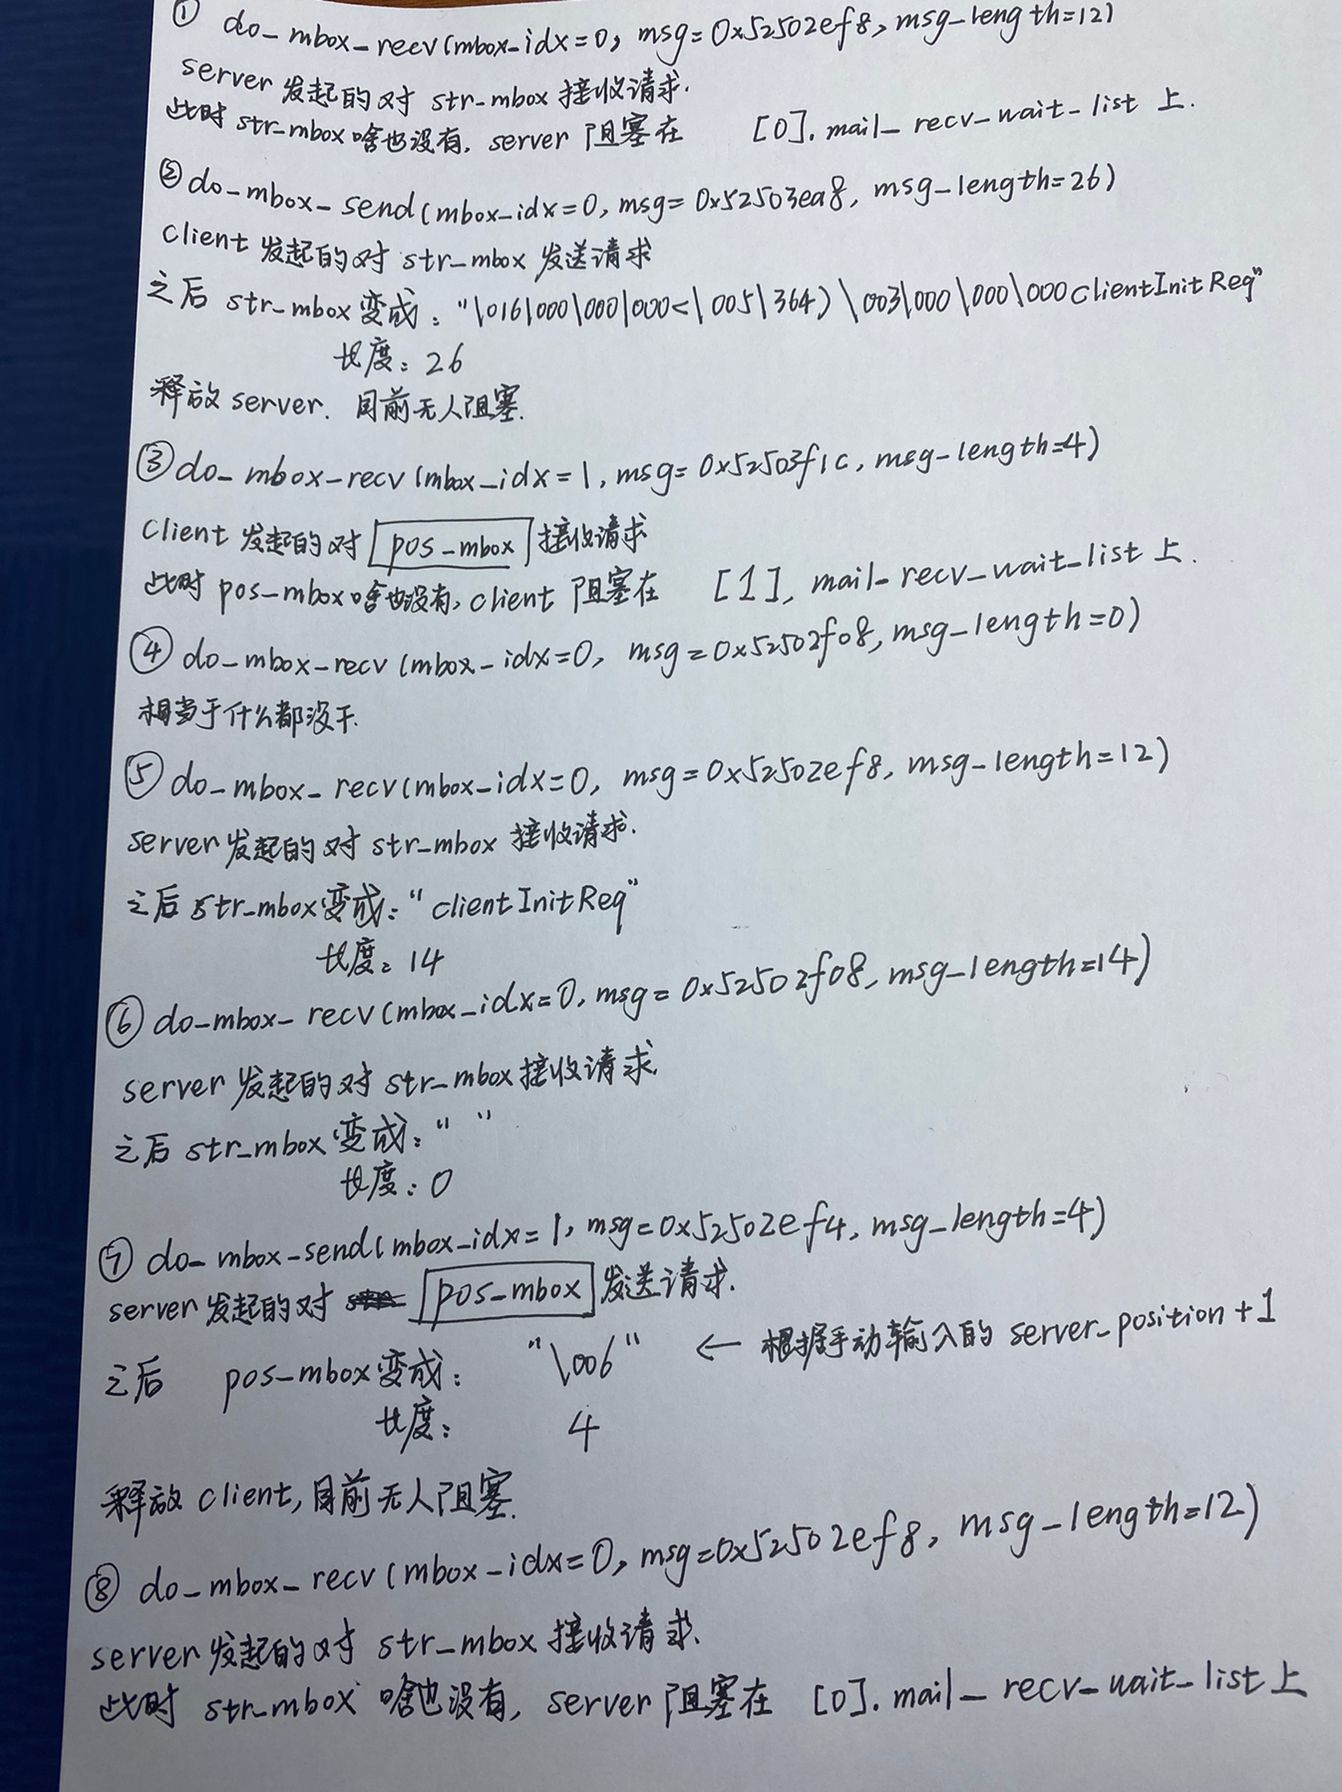 ① do_mbox_recv(mbox_idx=0, msg=0x52502ef8, msg_length=12)
server 发起的对 str_mbox 接收请求.
此时 str_mbox 啥也没有, server 阻塞在 [0].mail_recv_wait_list 上.
② do_mbox_send(mbox_idx=0, msg=0x52503ea8, msg_length=26)
client 发起的对 str_mbox 发送请求
之后 str_mbox 变成: "\016\000\000\000<\005\364)\003\000\000\000clientInitReq"
长度: 26
释放 server. 目前无人阻塞.
③ do_mbox_recv(mbox_idx=1, msg=0x52503f1c, msg_length=4)
client 发起的对 pos_mbox 接收请求
此时 pos_mbox 啥也没有, client 阻塞在 [1], mail_recv_wait_list 上.
④ do_mbox_recv(mbox_idx=0, msg=0x52502f08, msg_length=0)
相当于什么都没干.
⑤ do_mbox_recv(mbox_idx=0, msg=0x52502ef8, msg_length=12)
server 发起的对 str_mbox 接收请求.
之后 str_mbox 变成: "clientInitReq"
长度: 14
⑥ do_mbox_recv(mbox_idx=0, msg=0x52502f08, msg_length=14)
server 发起的对 str_mbox 接收请求.
之后 str_mbox 变成: " "
长度: 0
⑦ do_mbox_send(mbox_idx=1, msg=0x52502ef4, msg_length=4)
server 发起的对 pos_mbox 发送请求.
之后 pos_mbox 变成: "\006" ← 根据手动输入的 server_position+1
长度: 4
释放 client, 目前无人阻塞.
⑧ do_mbox_recv(mbox_idx=0, msg=0x52502ef8, msg_length=12)
server 发起的对 str_mbox 接收请求.
此时 str_mbox 啥也没有, server 阻塞在 [0].mail_recv_wait_list 上